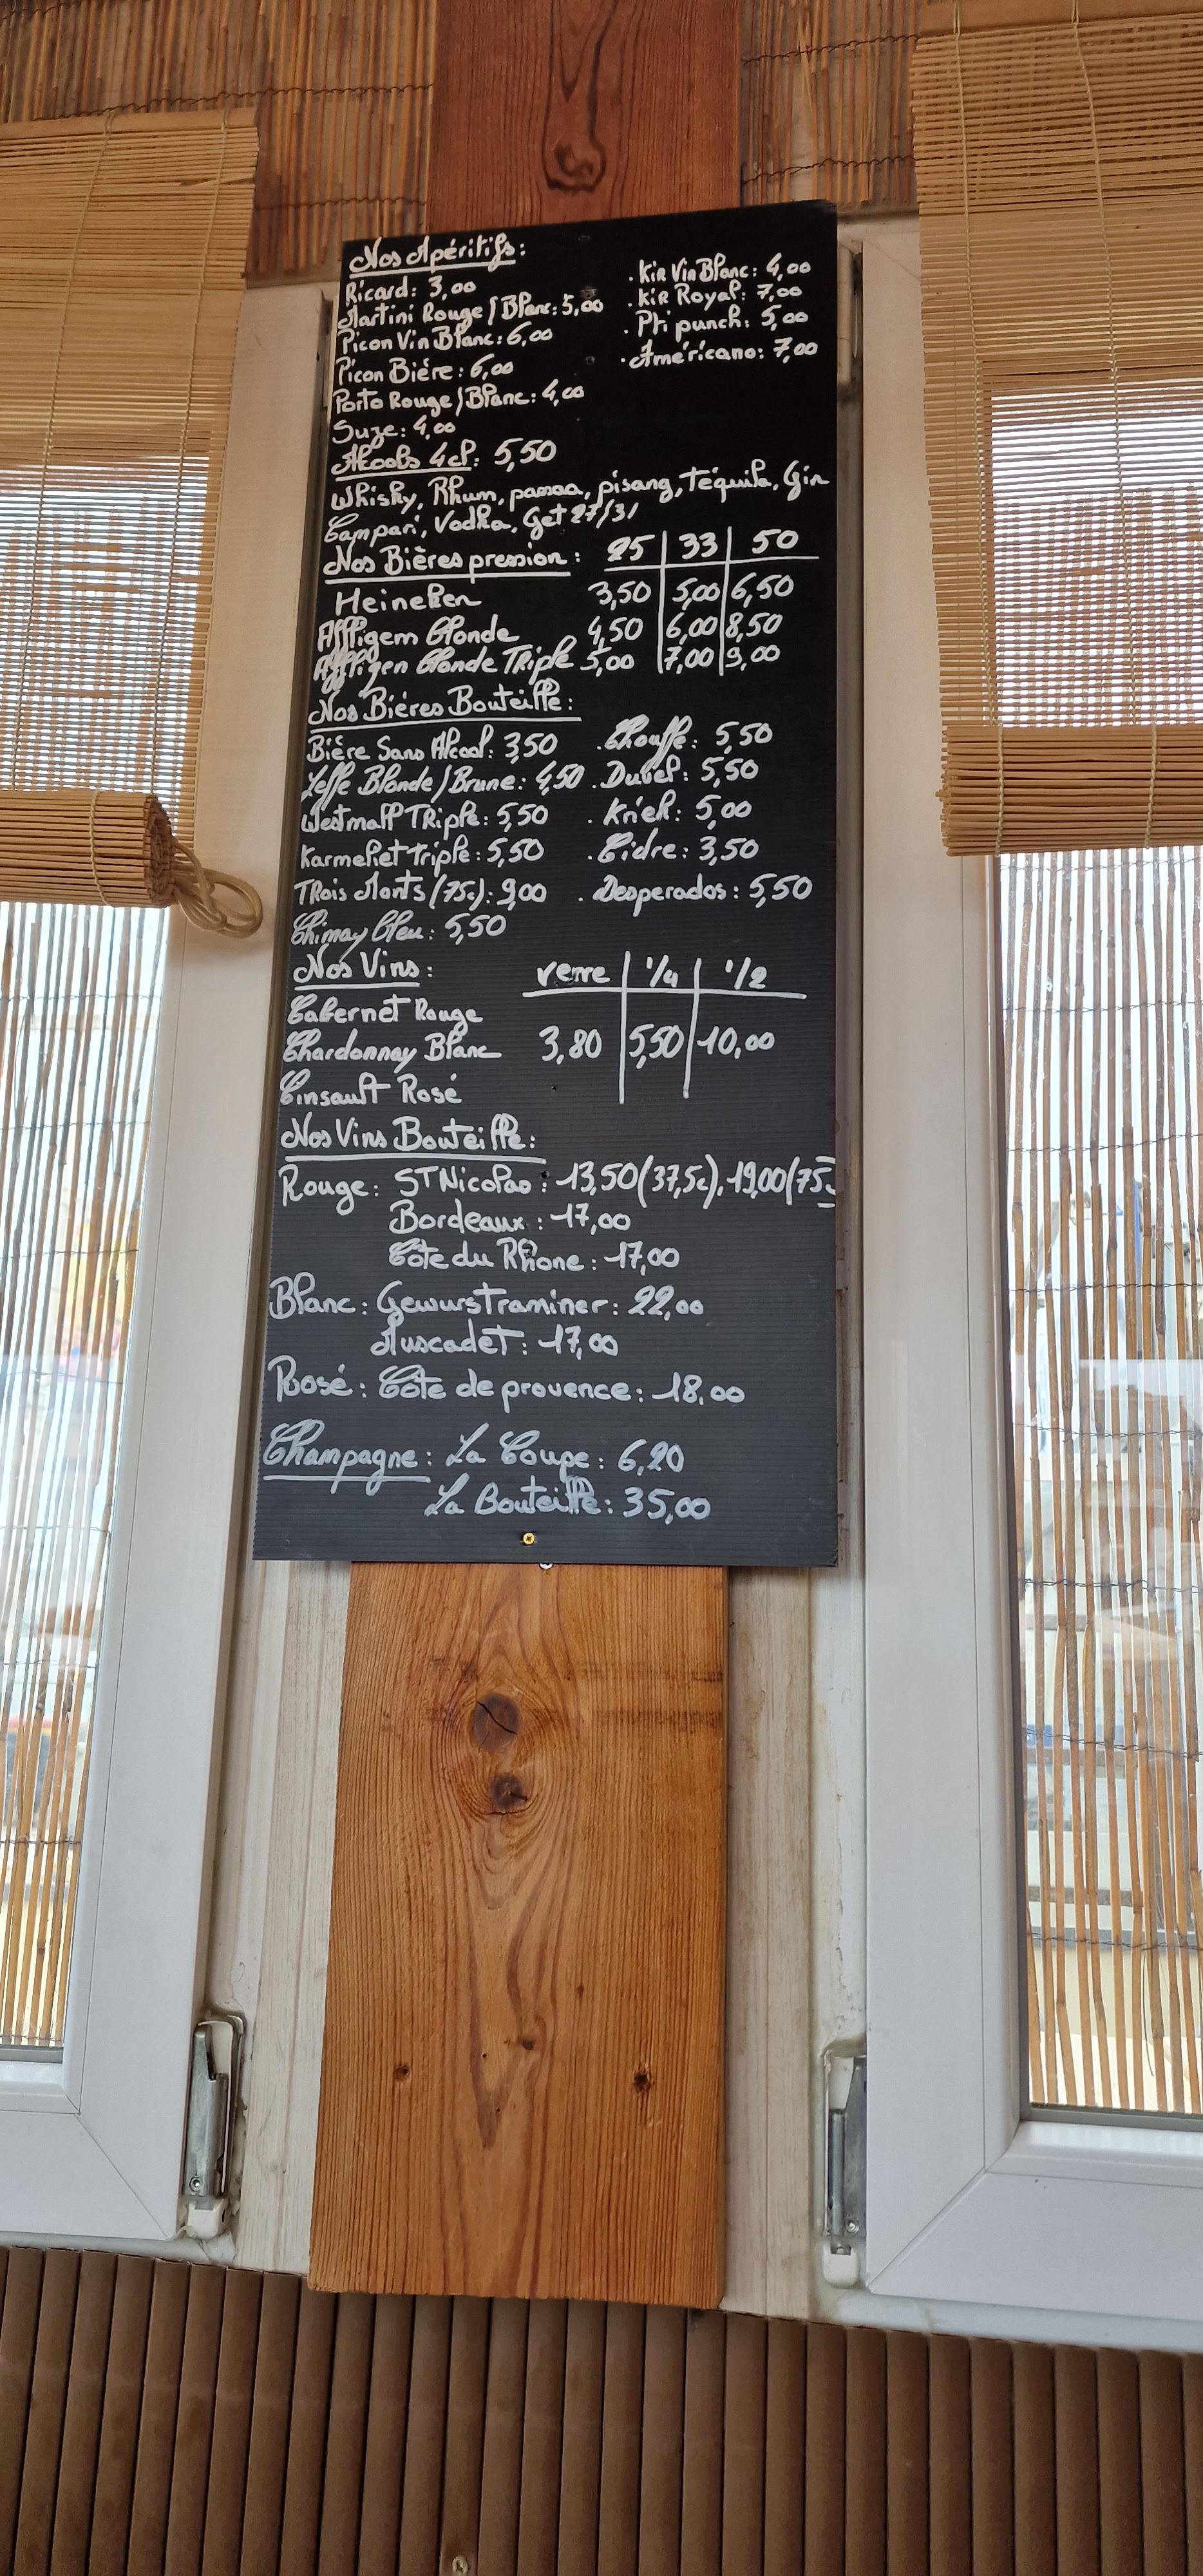 Nos Apéritifs:
Ricard: 3,00
Martini Rouge/Blanc: 5,00
Picon Vin Blanc: 6,00
Picon Bière: 6,00
Porto Rouge/Blanc: 4,00
Suze: 4,00
. Kir Vin Blanc: 4,00
. Kir Royal: 7,00
. Pti punch: 5,00
. Américano: 7,00
Alcools 4cl: 5,50
Whisky, Rhum, passoa, pisang, téquila, Gin
Campari, Vodka, Get 27/31
Nos Bières pression: 25 33 50
Heineken 3,50 5,00 6,50
Affligem blonde 4,50 6,00 8,50
Affligen blonde Triple 5,00 7,00 9,00
Nos Bières Bouteille:
Bière Sans Alcool: 3,50 . Chouffe: 5,50
Leffe Blonde/Brune: 4,50 . Duvel: 5,50
Westmall TRiple: 5,50 . Kriek: 5,00
Karmeliet triple: 5,50 . Cidre: 3,50
TRois Monts (75c): 9,00 . Desperados: 5,50
Chimay bleu: 5,50
Nos Vins: verre 1/4 1/2
Cabernet Rouge
Chardonnay Blanc 3,80 5,50 10,00
Cinsault Rosé
Nos Vins Bouteille:
Rouge: ST Nicolas: 13,50 (37,5c), 19,00 (75c
Bordeaux: 17,00
Côte du Rhone: 17,00
Blanc: Gewurstraminer: 22,00
Muscadet: 17,00
Rosé: Côte de provence: 18,00
Champagne: La Coupe: 6,20
La Bouteille: 35,00